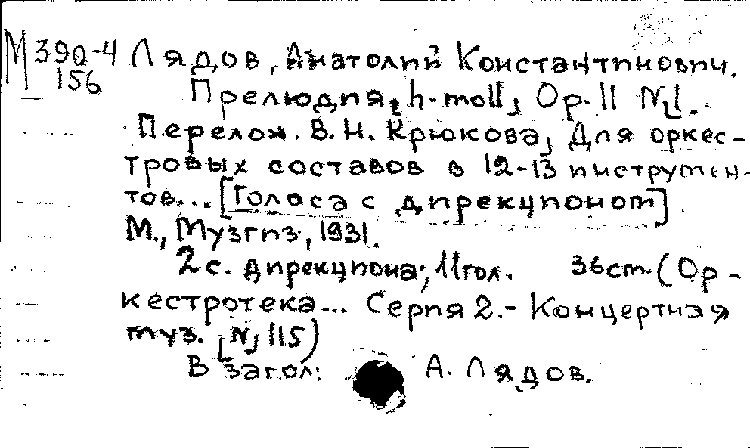 М 390-4 Лядов, Анатолий Константинович.
156
Прелюдия, h-moll, Op. 11 N 1.
Перелож. В. Н. Крюкова, Для оркес-
тровых составов в 12-13 инструмен-
тов... [Голоса с дирекционом]
М., Музгиз, 1931.
2 с. дирекциона, 11 гол. 36 cm. (Ор-
кестротека... Серия 2.- Концертная
муз. [N 115)
В загол: А. Лядов.